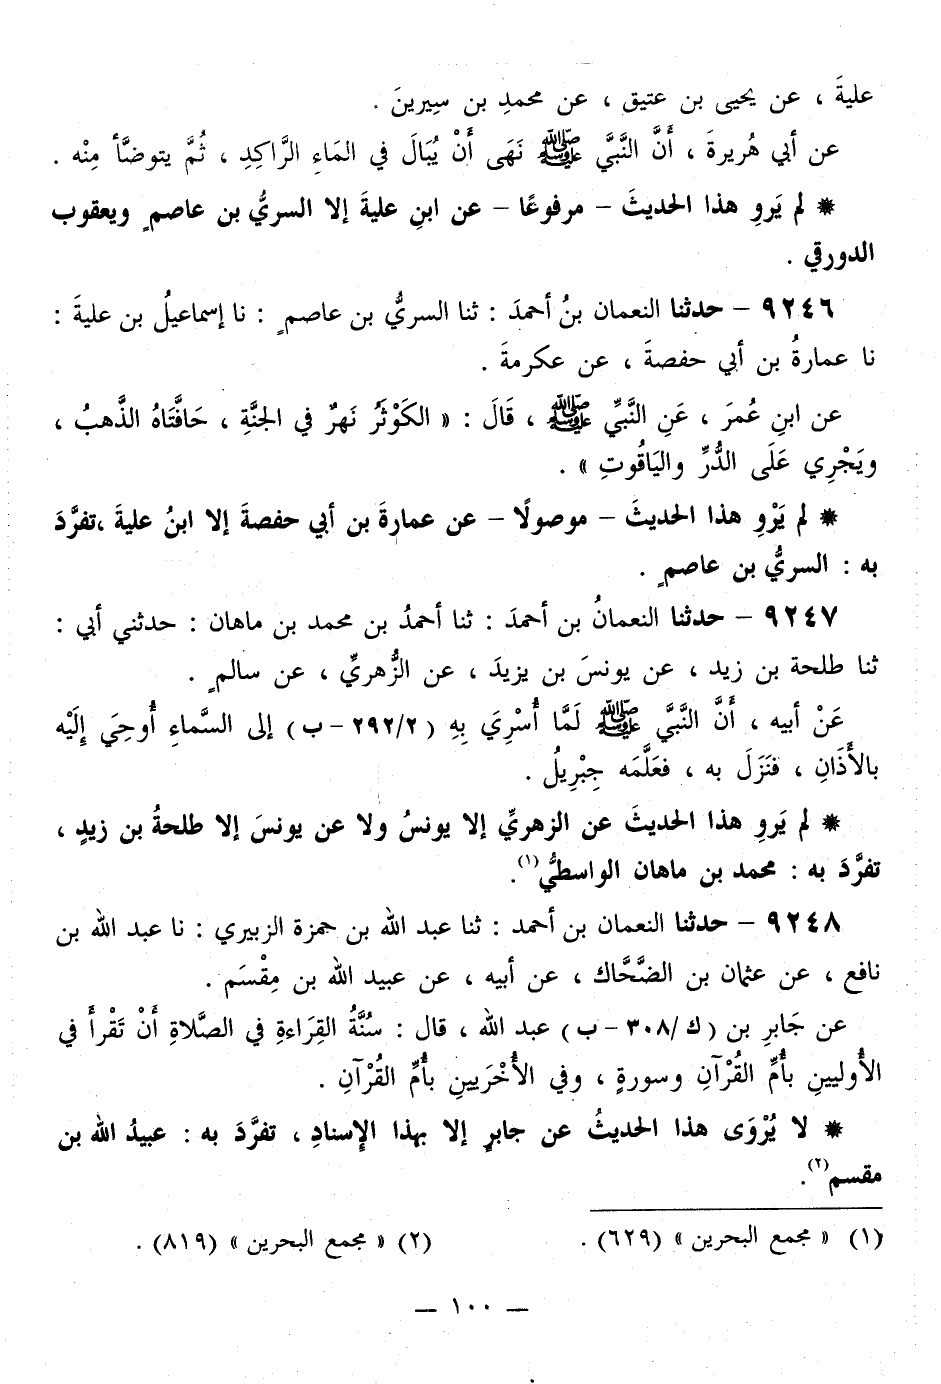 عليةَ ، عن يحيى بن عتيق ، عن محمدِ بن سِيرينَ .
عن أبي هُريرةَ ، أَنَّ النَّبيَّ ﷺ نَهَى أَنْ يُبَالَ في المَاءِ الرَّاكِدِ ، ثُمَّ يتوضَّأ مِنْه .
* لم يَروِ هذا الحديثَ – مرفوعًا – عن ابنِ عليةَ إلا السريُّ بن عاصمٍ ويعقوب
الدورقي .
٩٢٤٦ – حدثنا النعمان بنُ أحمدَ : ثنا السريُّ بن عاصمٍ : نا إسماعيلُ بن عليةَ :
نا عمارةُ بن أبي حفصةَ ، عن عكرمةَ .
عن ابنِ عُمرَ ، عَنِ النَّبيِّ ﷺ ، قَالَ : « الكَوْثَرُ نَهرٌ في الجنَّةِ ، حَافَّتَاهُ الذَّهبُ ،
ويَجْرِي عَلَى الدُّرِّ واليَاقُوتِ » .
* لم يَرْوِ هذا الحديثَ – موصولًا – عن عمارةَ بن أبي حفصةَ إلا ابنُ عليةَ ،تفرَّدَ
به : السريُّ بن عاصمٍ .
٩٢٤٧ – حدثنا النعمانُ بن أحمدَ : ثنا أحمدُ بن محمد بن ماهان : حدثني أبي :
ثنا طلحة بن زيد ، عن يونسَ بن يزيدَ ، عن الزُّهريِّ ، عن سالمٍ .
عَنْ أبيه ، أَنَّ النَّبيَّ ﷺ لَمَّا أُسْرِيَ بِهِ (٢٩٢/٢ – ب) إلى السَّماءِ أُوحِيَ إِلَيْه
بالأَذَانِ ، فنَزَلَ به ، فعَلَّمَه جِبْرِيلُ .
* لم يَروِ هذا الحديثَ عن الزهريِّ إلا يونسُ ولا عن يونسَ إلا طلحةُ بن زيدٍ ،
تفرَّدَ به : محمد بن ماهان الواسطيُّ(١).
٩٢٤٨ – حدثنا النعمان بن أحمد : ثنا عبد الله بن حمزة الزبيري : نا عبد الله بن
نافع ، عن عثمان بن الضَّحَّاك ، عن أبيه ، عن عبيد الله بن مِقْسَم .
عن جَابرِ بن (ك /٣٠٨ – ب) عبد الله ، قال : سُنَّةُ القِرَاءةِ في الصَّلاةِ أَنْ تَقْرأَ في
الأُوليينِ بأُمِّ القُرْآنِ وسورةٍ ، وفي الأُخْرَيينِ بأُمِّ القُرْآنِ .
* لا يُرْوَى هذا الحديثُ عن جابرٍ إلا بهذا الإسنادِ ، تفرَّدَ به : عبيدُ الله بن
مقسم(٢).
(١) « مجمع البحرين » (٦٢٩) .
(٢) « مجمع البحرين » (٨١٩) .
— ١٠٠ —